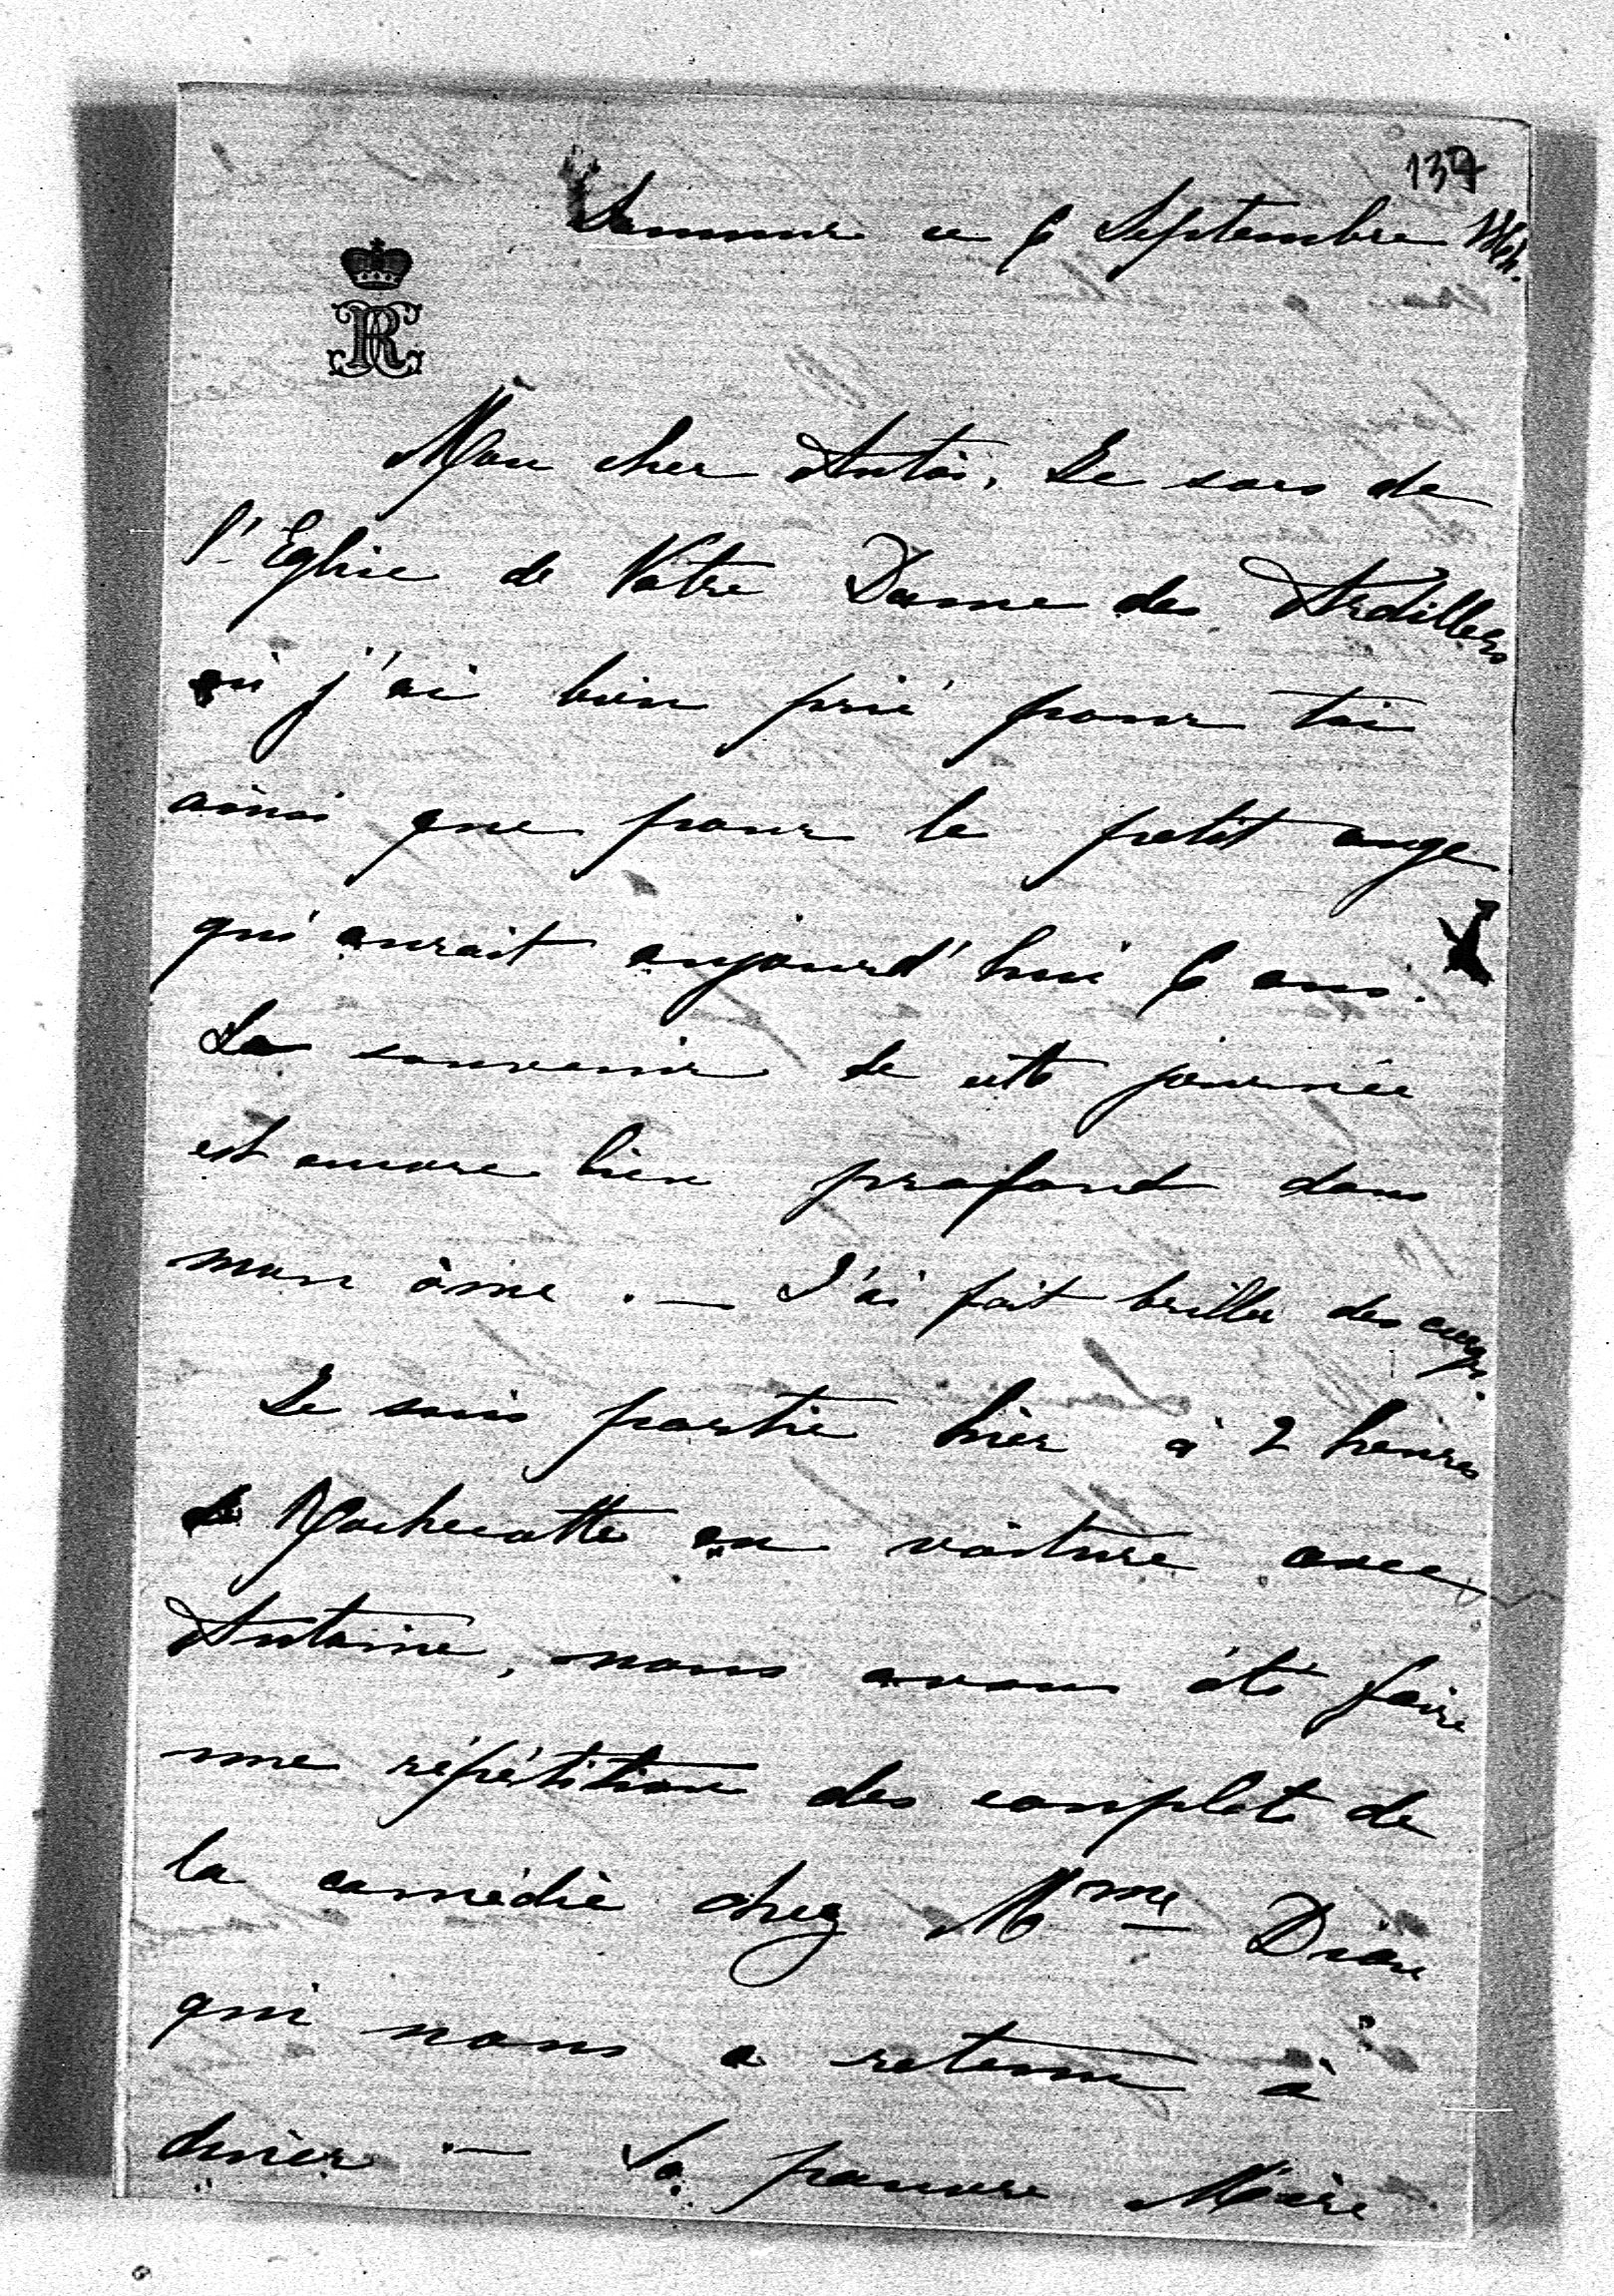 137
Saumur ce 6 Septembre 1864.
R
Mon cher Antoi, Je sors de
l'Eglise de Notre Dame des Ardillers
où j'ai bien prié pour toi
ainsi que pour le petit ange
qui aurait aujourd'hui 6 ans.
Le souvenir de cette journée
est encore bien profond dans
mon âme. — J'ai fait briller des
Je suis partie hier à 2 heures
de Rochecotte en voiture avec
Antoine, nous avons été faire
une répétition des couplets de
la comédie chez Mme
qui nous a retenu à
diner — Sa pauvre Mère